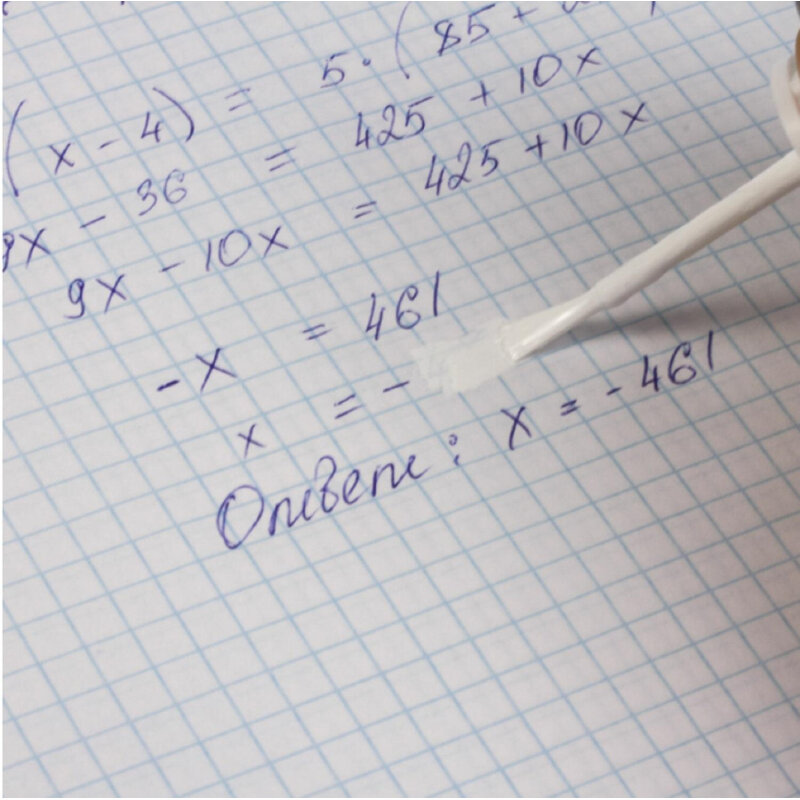 (x - 4) = 5 · (85 +
9x - 36 = 425 + 10x
9x - 10x = 425 + 10x
-x = 461
x = -
Ответ: x = -461